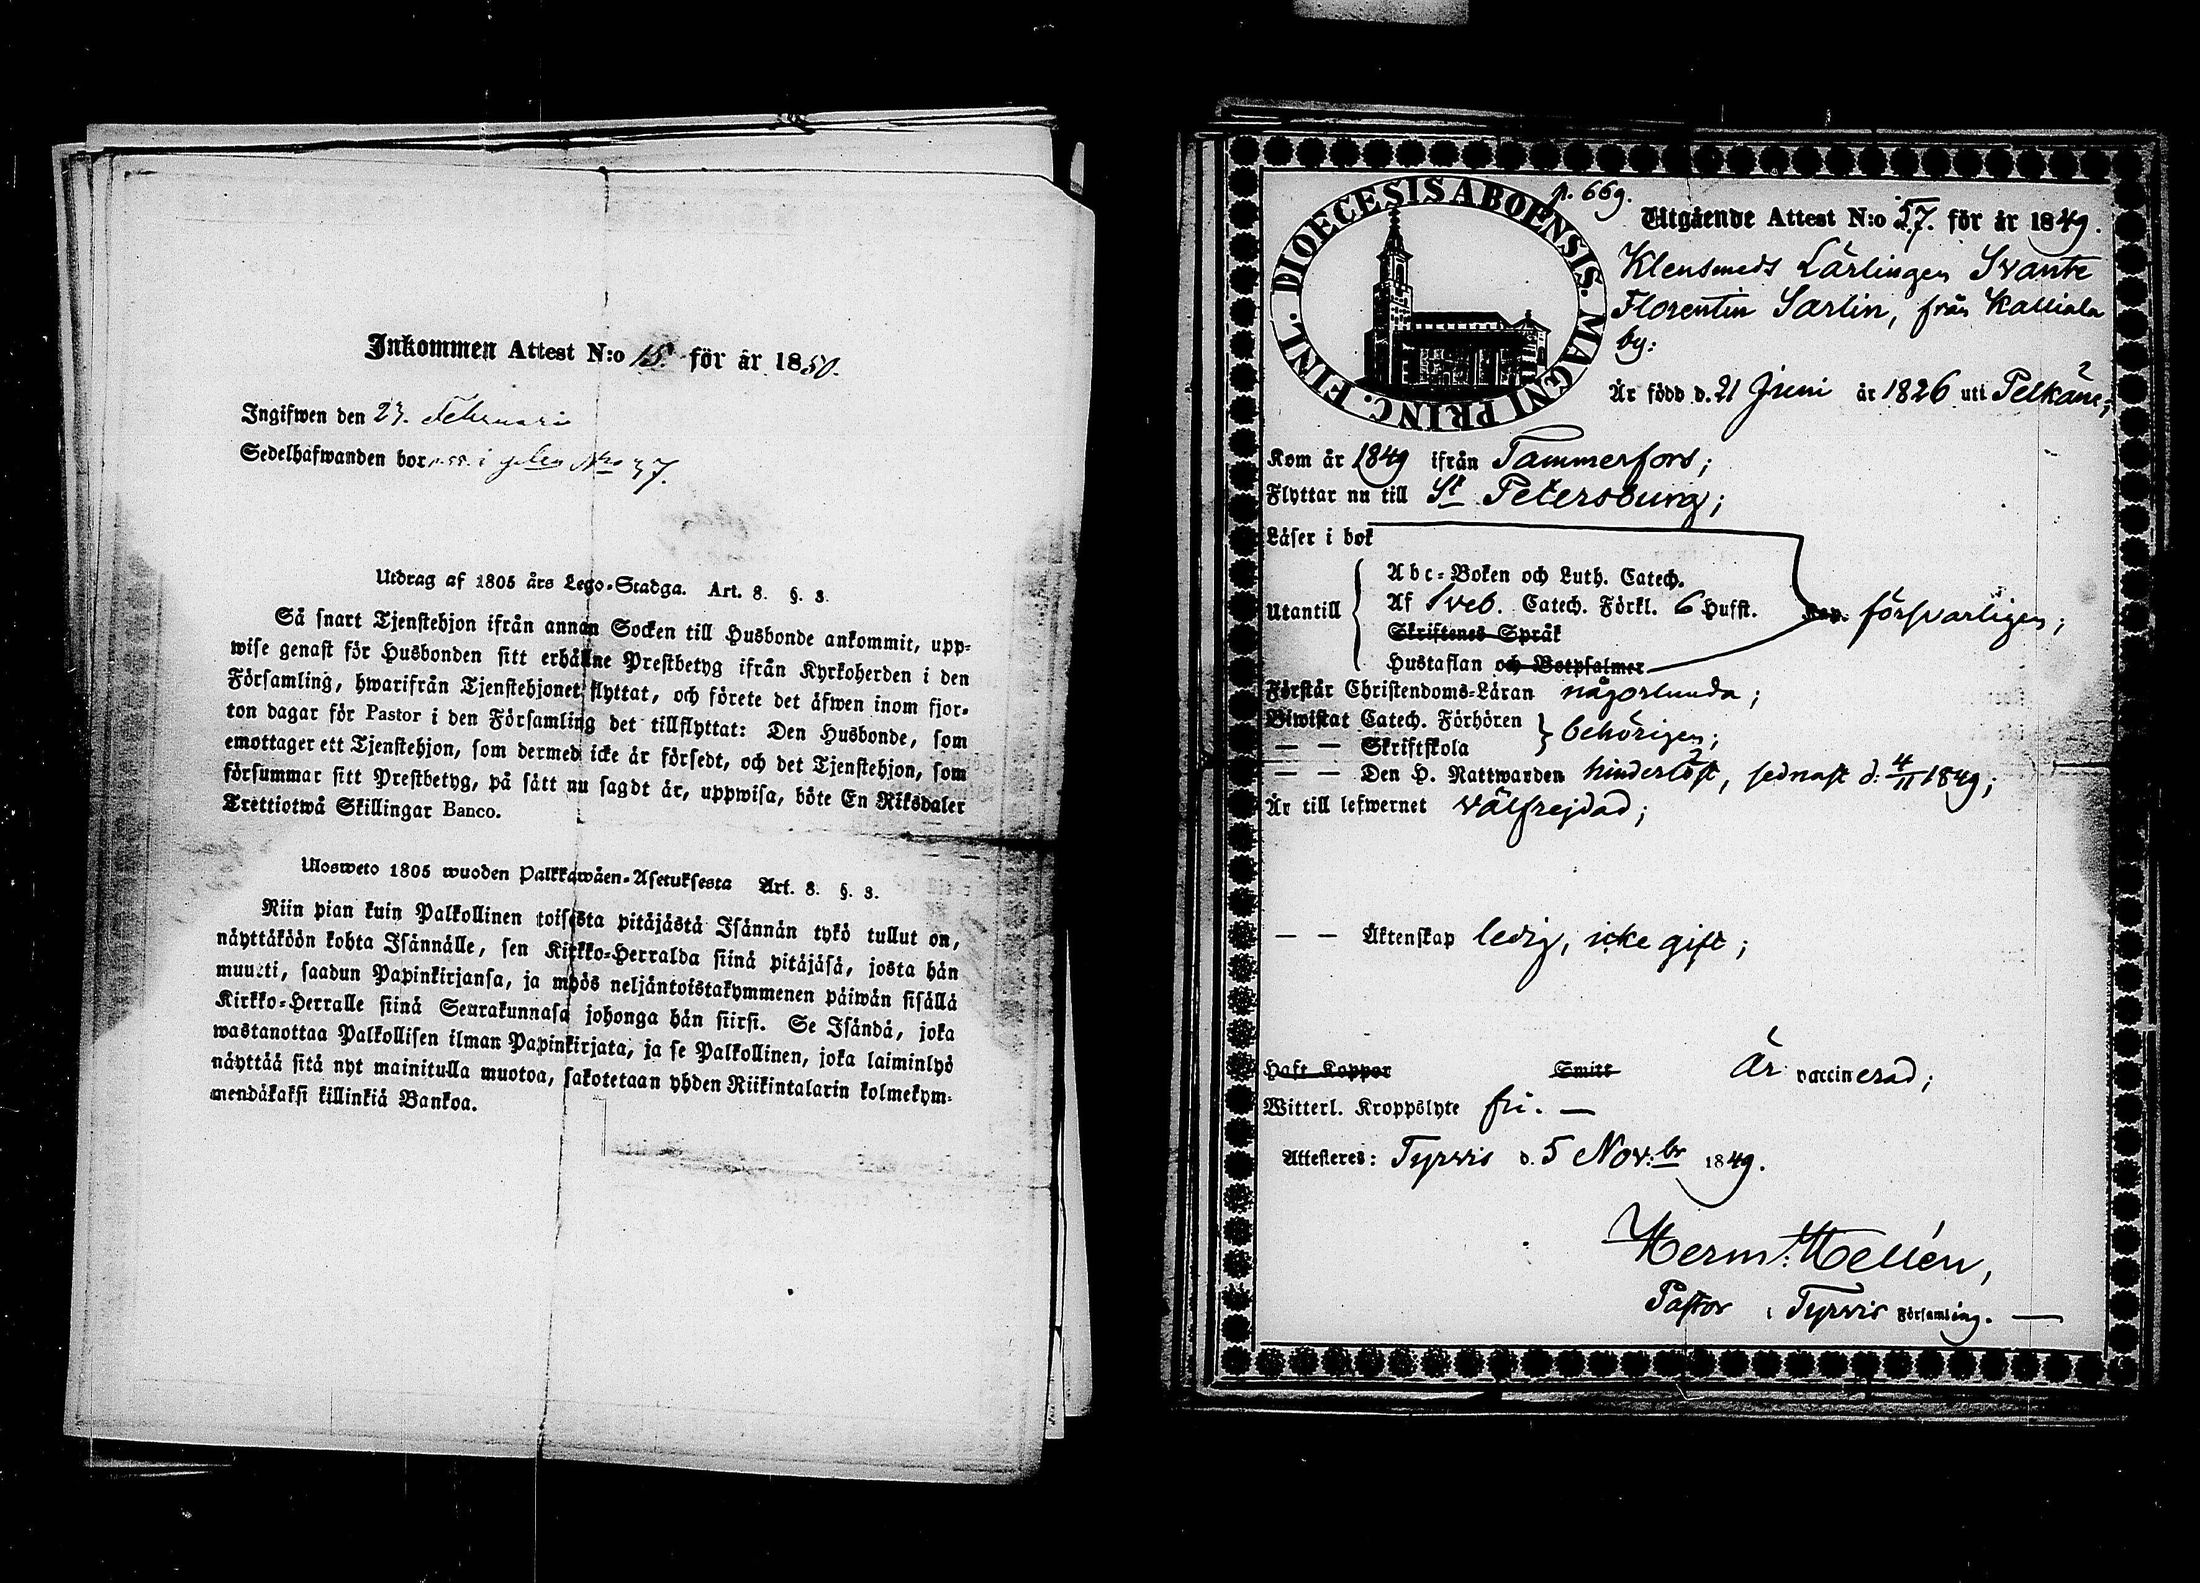 Inkommen Attest N:o 15. för år 1850.
Ingifwen den 23. Februari
Sedelhafwanden bor i
Utdrag af 1805 års Lego-Stadga. Art. 8. §. 3.
Så snart Tjenstehjon ifrån annan Socken till Husbonde ankommit, upp-
wise genast för Husbonden sitt erhållne Prestbetyg ifrån Kyrkoherden i den
Församling, hwarifrån Tjenstehjonet flyttat, och förete det äfwen inom fjor-
ton dagar för Pastor i den Församling det tillflyttat: Den Husbonde, som
emottager ett Tjenstehjon, som dermed icke är försedt, och det Tjenstehjon, som
försummar sitt Prestbetyg, på sätt nu sagdt är, uppwisa, böte En Riksdaler
Trettiotwå Skillingar Banco.
Ulosweto 1805 wuoden Palkkawäen-Asetuksesta Art. 8. §. 3.
Niin pian kuin Palkollinen toisesta pitäjästä Isännän tykö tullut on,
näyttäköön kohta Isännälle, sen Kirkko-Herralda siinä pitäjäsä, josta hän
muutti, saadun Papinkirjansa, ja myös neljäntoistakymmenen päiwän sisällä
Kirkko-Herralle siinä Seurakunnasa johonga hän siirsi. Se Isändä, joka
wastanottaa Palkollisen ilman Papinkirjata, ja se Palkollinen, joka laiminlyö
näyttää sitä nyt mainitulla muotoa, sakotetaan yhden Riikintalarin kolmekym-
mendäkaksi killinkiä Bankoa.
DIOECESIS ABOENSIS. MAGNI PRINC. FINL.
p. 669.
Utgående Attest N:o 57. för år 1849.
Klensmeds Lärlingen Svante
Florentin Sarlin, från Kalliala
by:
Är född d. 21 Juni år 1826 uti Pelkäne;
Kom år 1849 ifrån Tammerfors;
Flyttar nu till St Petersburg;
Läser i bok
Utantill
Abc-Boken och Luth. Catech.
Af Sveb. Catech. Förkl. 6 Hufst.
Skriftenes Språk
Hustaflan och Botpsalmer
försvarligen;
Förstår Christendoms-Läran någorlunda;
Biwistat Catech. Förhören
— — Skriftskola
behörigen;
— — Den H. Nattwarden hinderlöst, sednast d: 4/11 1849;
Är till lefwernet välfrejdad;
— — Äktenskap ledig, icke gift;
Haft Koppor Smitt Är vaccinerad;
Witterl. Kroppslyte fri. —
Attesteres: Tyrvis d. 5 Nov:br 1849.
Herm: Hellén,
Pastor i Tyrvis Församling. —